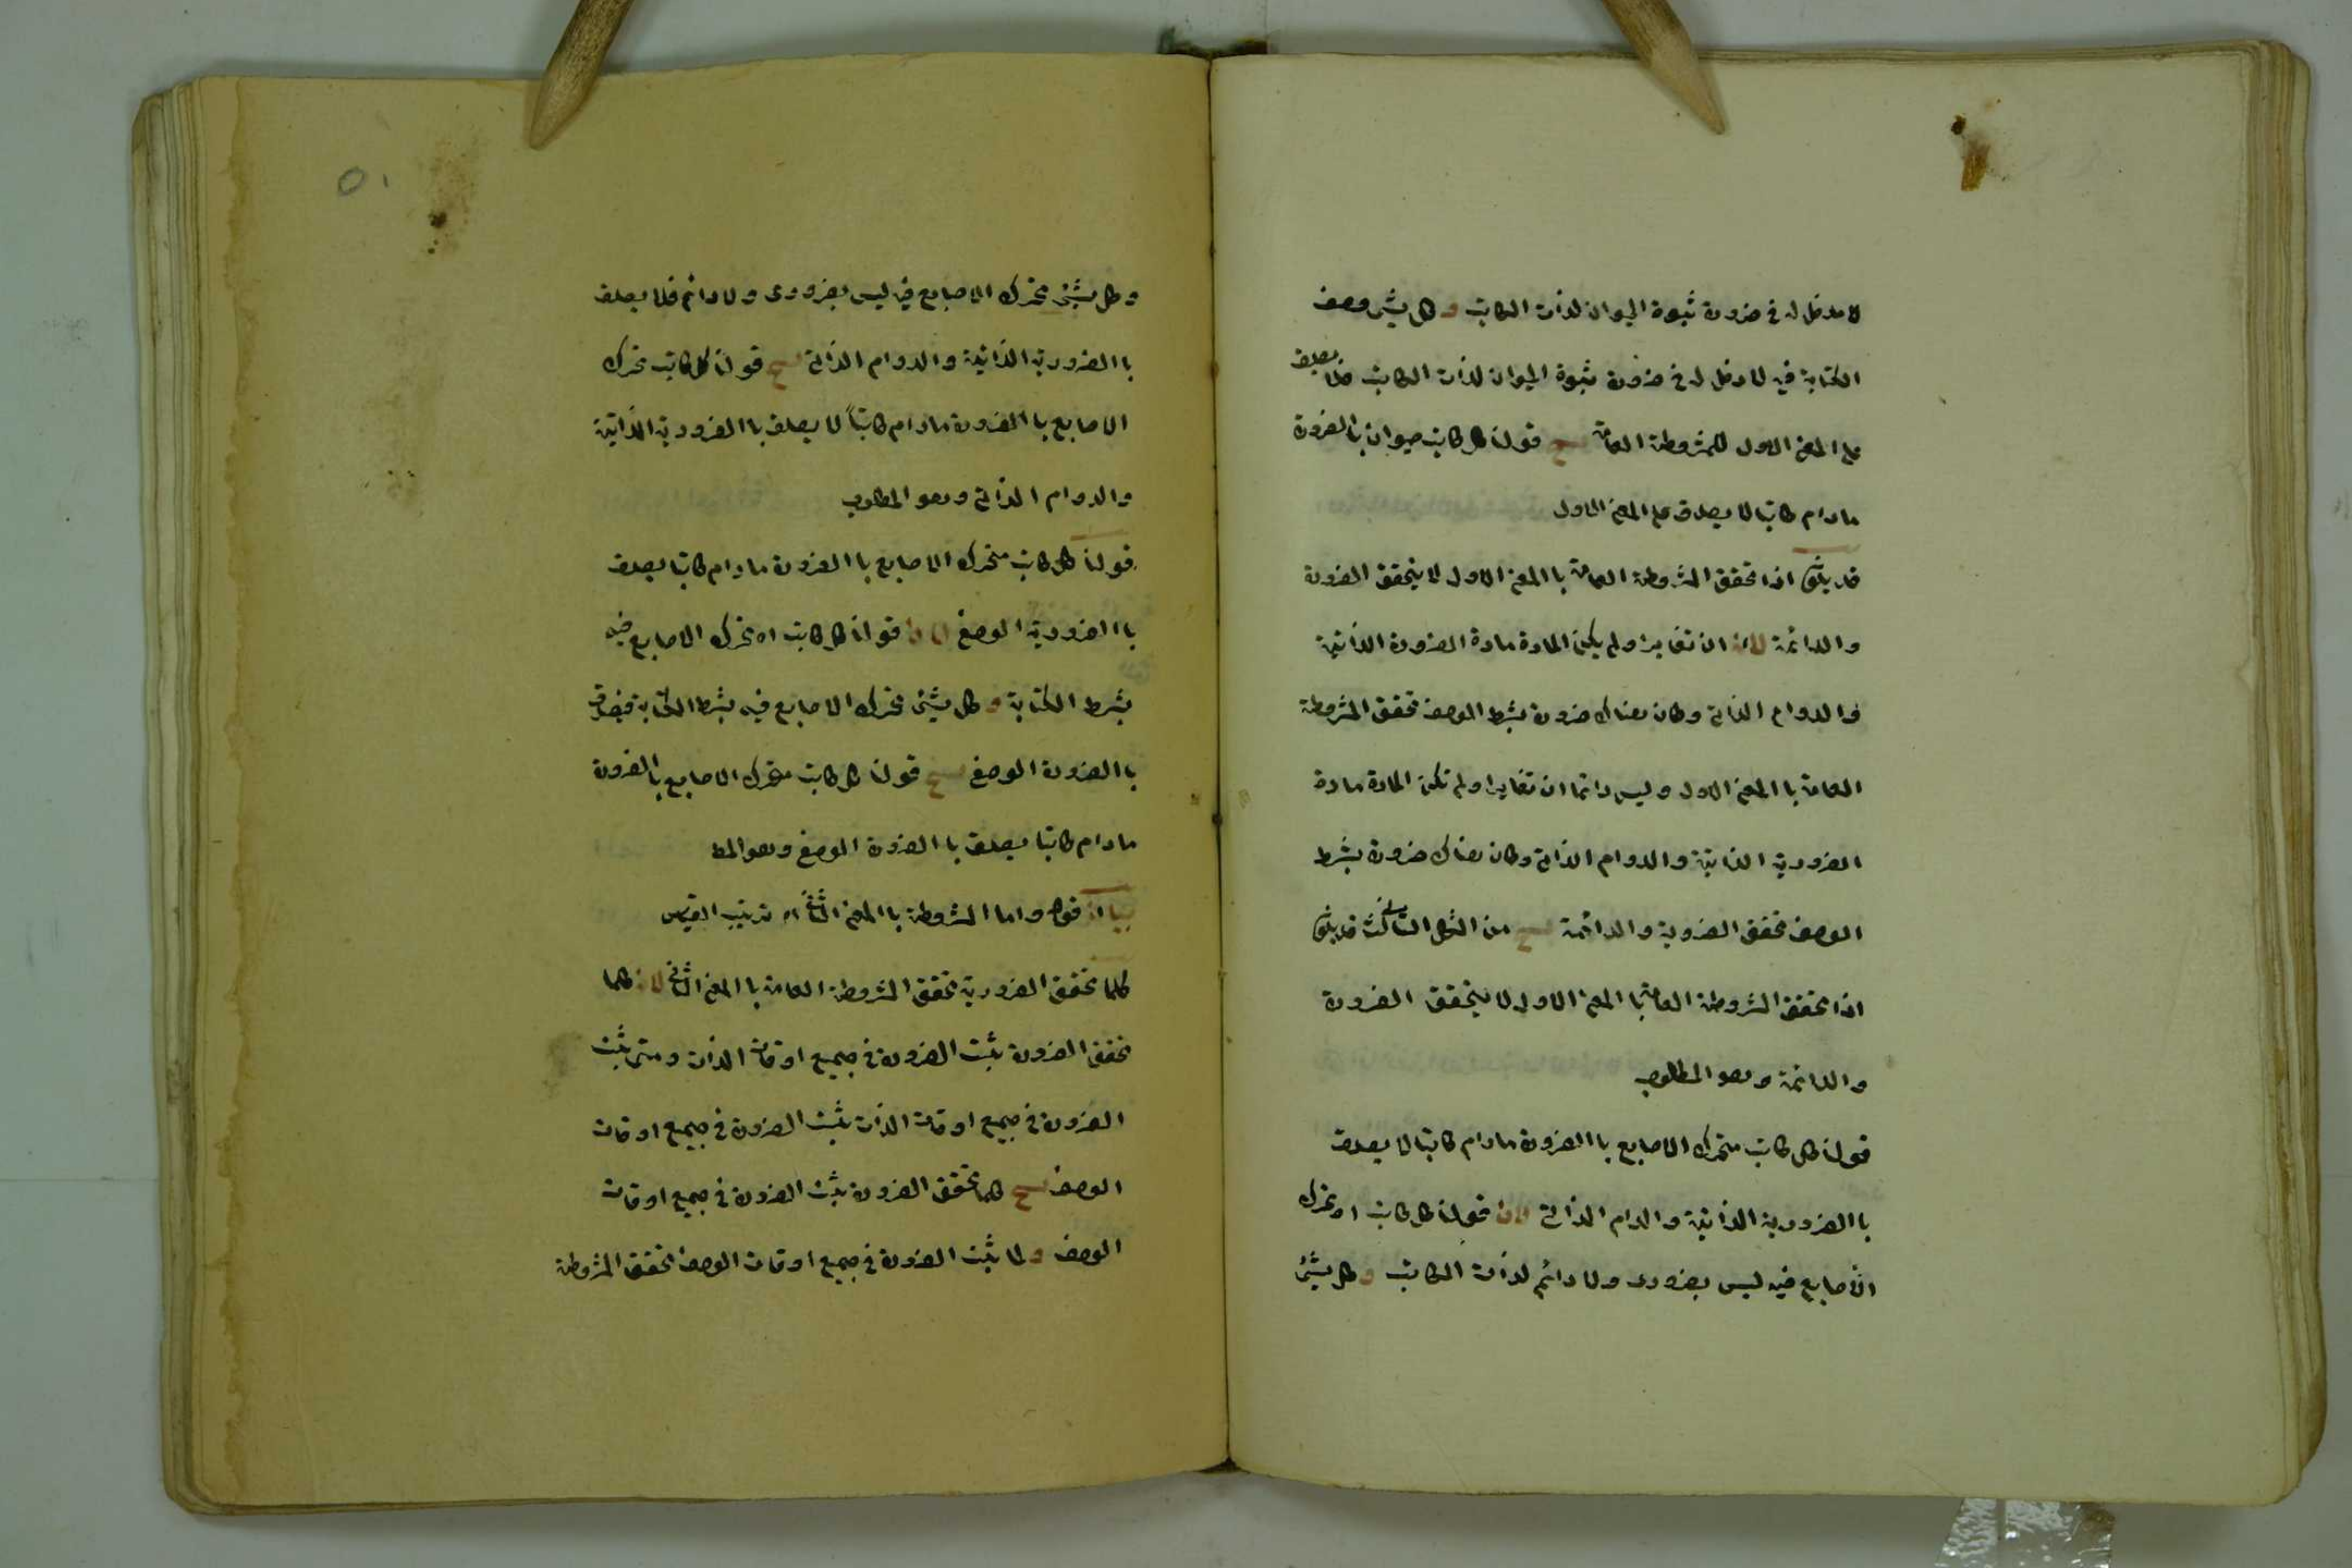 لا مدخل له في ضرورة ثبوة الحيوان لذات الكاتب و كل شئ وصف
الكتابة فيه لا دخل له في ضرورة ثبوة الحيوان لذات الكاتب فلا يصدق
على المعنى الاول للمشروطة العامة ينتج قولنا كل كاتب حيوان باالضرورة
مادام كاتبا لا يصدق على المعنى الاول
قد يكون اذا تحقق المشروطة العامة باالمعنى الاول لا يتحقق الضرورة
والدائمة لانه ان تغايرا ولم يكن المادة مادة الضرورة الذاتية
والدوام الذاتي وكان هناك ضرورة بشرط الوصف تحقق المشروطة
العامة باالمعنى الاول وليس دائما ان تغايرا ولم تكن المادة مادة
الضرورية الذاتية والدوام الذاتي وكان هناك ضرورة بشرط
الوصف تحقق الضرورية والدائمة ينتج من الشكل الثالث قد يكون
اذا تحقق المشروطة العامة باالمعنى الاول لا يتحقق الضرورة
والدائمة وهو المطلوب
قولنا كل كاتب متحرك الاصابع باالضرورة مادام كاتبا لا يصدق
باالضرورية الذاتية والدوام الذاتي لان قولنا كل كاتب اه تحرك
الأصابع فيه ليس بضرورى ولا دائم لذات الكاتب و كل شئ
٥١
وكل شئ تحرك الاصابع فيه ليس بضرورى ولا دائم فلا يصدق
باالضرورية الذاتية والدوام الذاتي ينتج قولنا كل كاتب تحرك
الاصابع باالضرورة مادام كاتباً لا يصدق باالضرورية الذاتية
والدوام الذاتي وهو المطلوب
قولنا كل كاتب متحرك الاصابع باالضرورة مادام كاتبا يصدق
باالضرورية الوصفي لان قولنا كل كاتب اه تحرك الاصابع فيه
بشرط الكتابة و كل شئ تحرك الاصابع فيه بشرط الكتابة فيصدق
باالضرورة الوصفي ينتج قولنا كل كاتب متحرك الاصابع باالضرورة
مادام كاتبا يصدق باالضرورة الوصفي وهو المط
بيان قوله واما المشروطة باالمعنى الثاني اه ترتيب القيس
كلما تحقق الضرورية تحقق المشروطة العامة باالمعنى الثاني لانه كلما
تحقق الضرورة يثبت الضرورة في جميع اوقات الذات ومتى يثبت
الضرورة في جميع اوقات الذات يثبت الضرورة في جميع اوقات
الوصف ينتج كلما تحقق الضرورة يثبت الضرورة في جميع اوقات
الوصف و لما يثبت الضرورة في جميع اوقات الوصف تحقق المشروطة